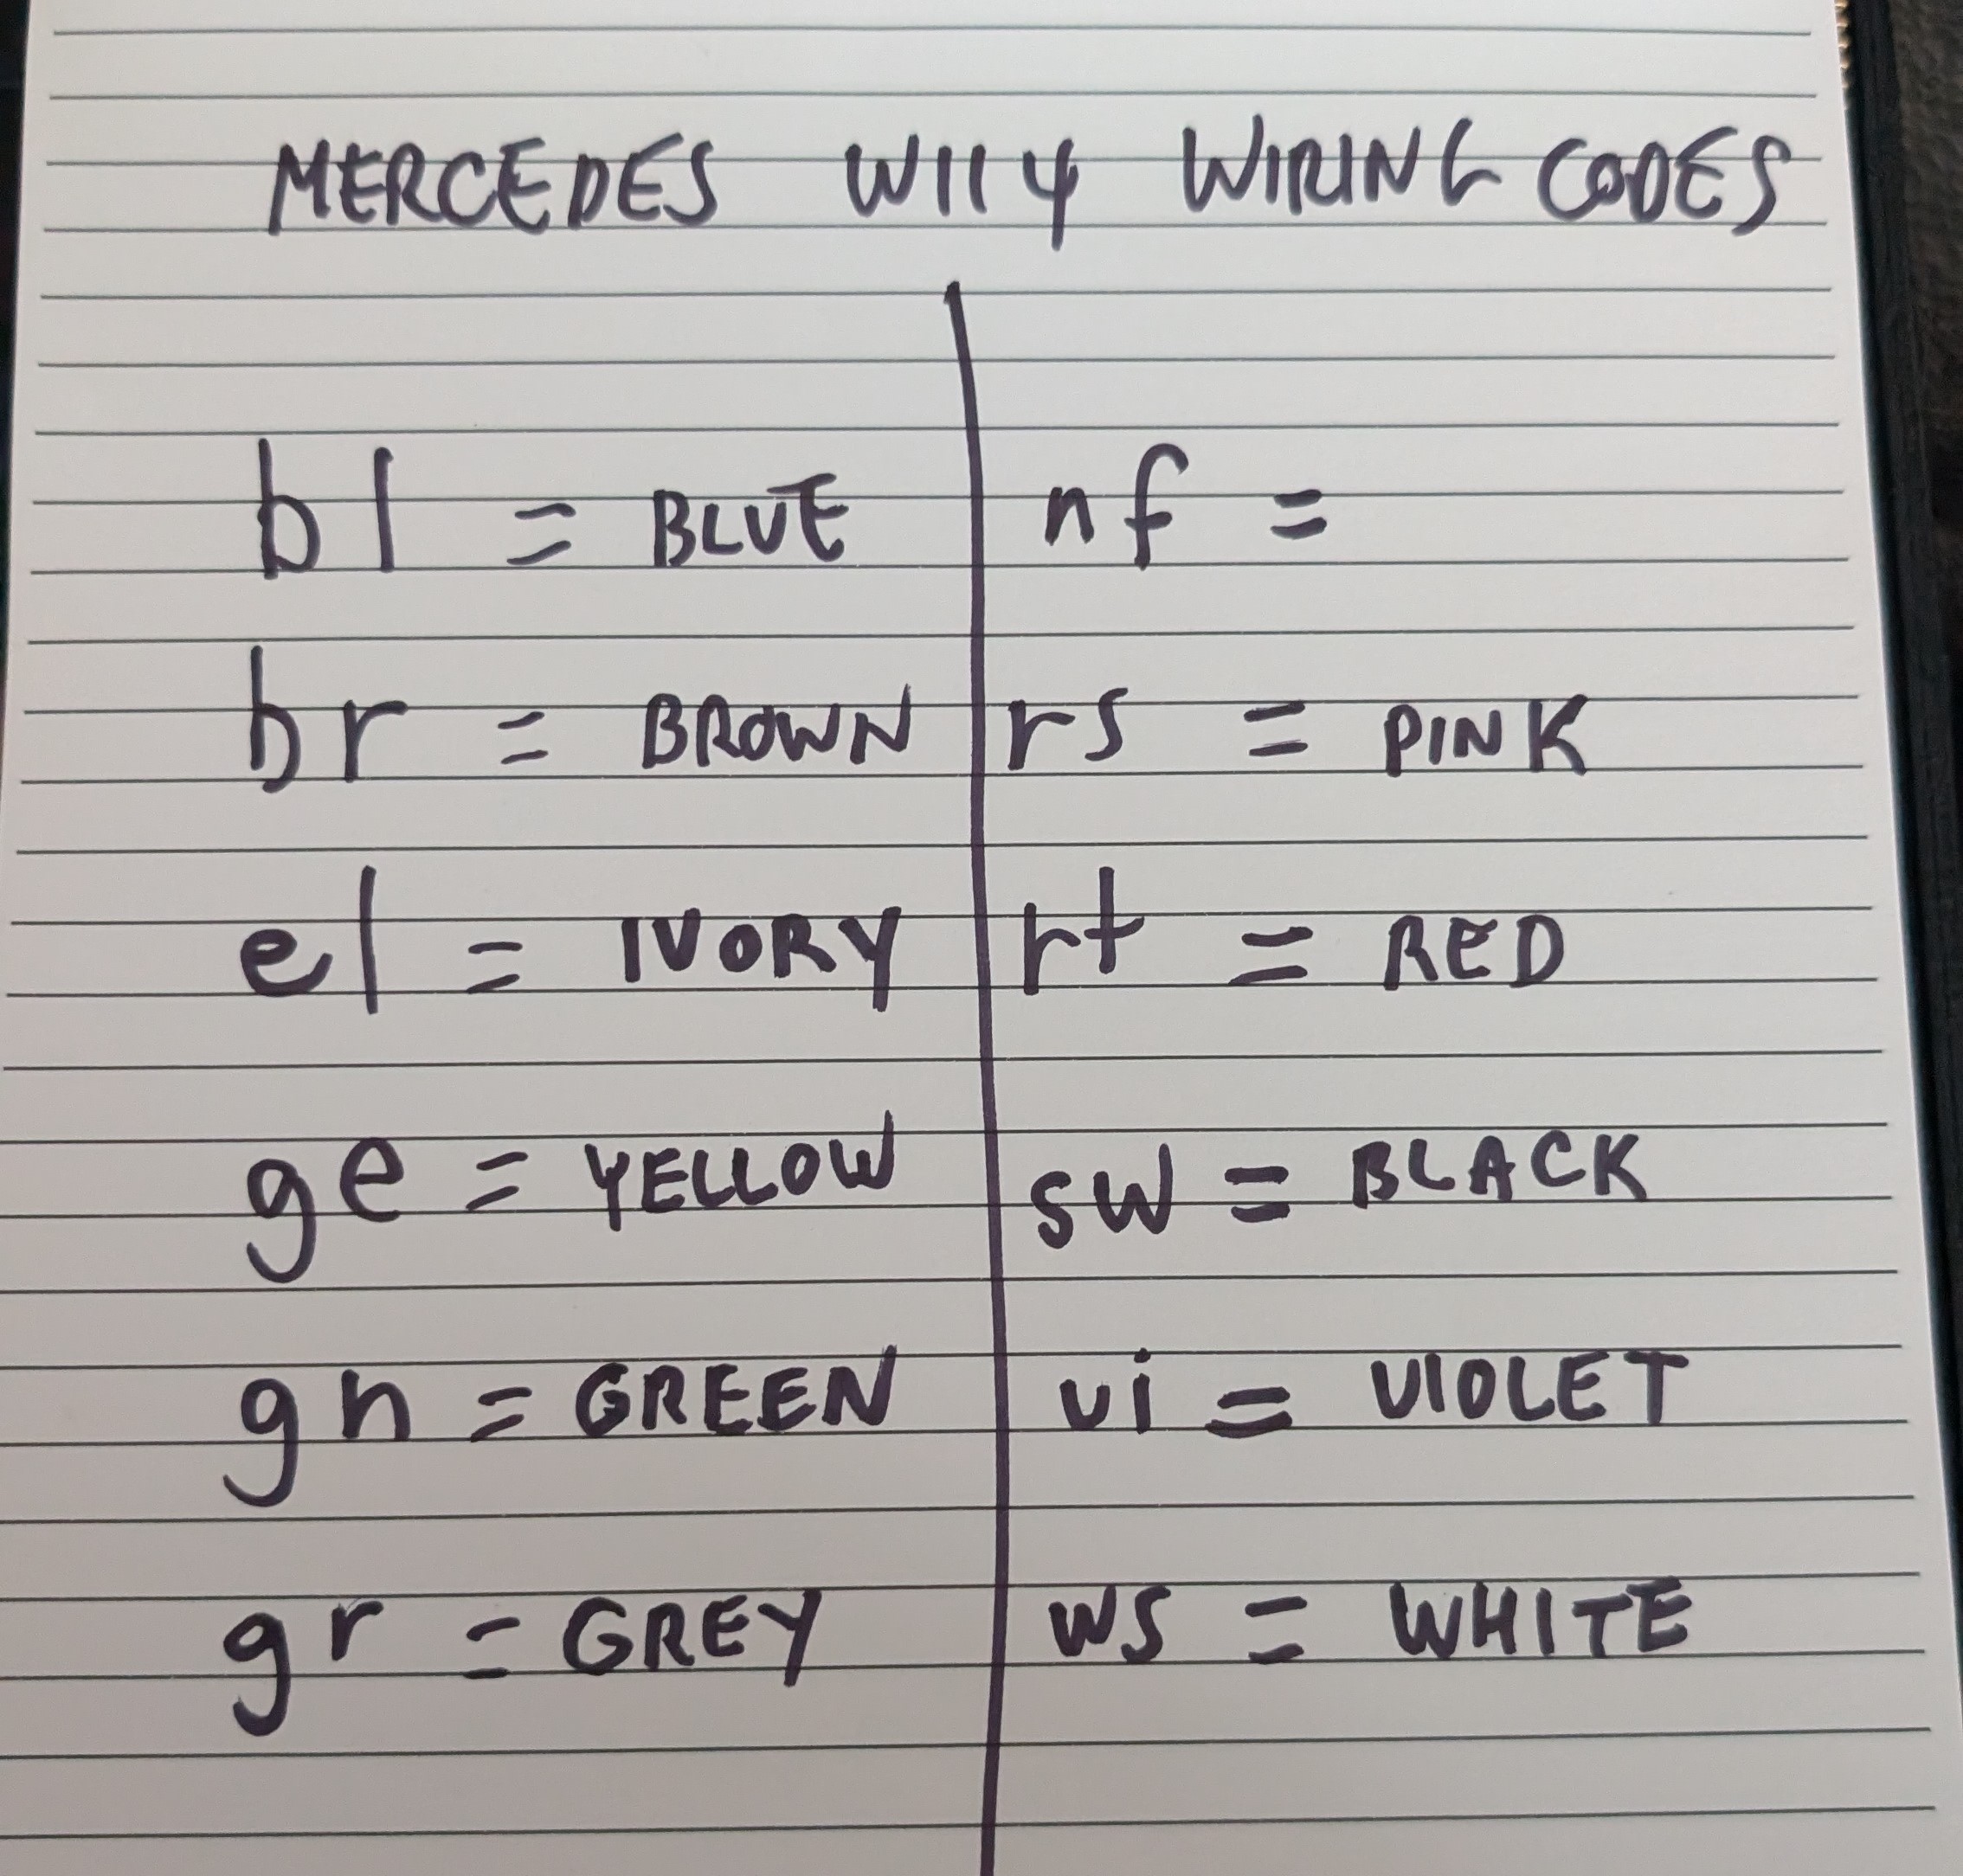 MERCEDES W114 WIRING CODES
bl = BLUE
br = BROWN
el = IVORY
ge = YELLOW
gn = GREEN
gr = GREY
nf =
rs = PINK
rt = RED
sw = BLACK
vi = VIOLET
ws = WHITE